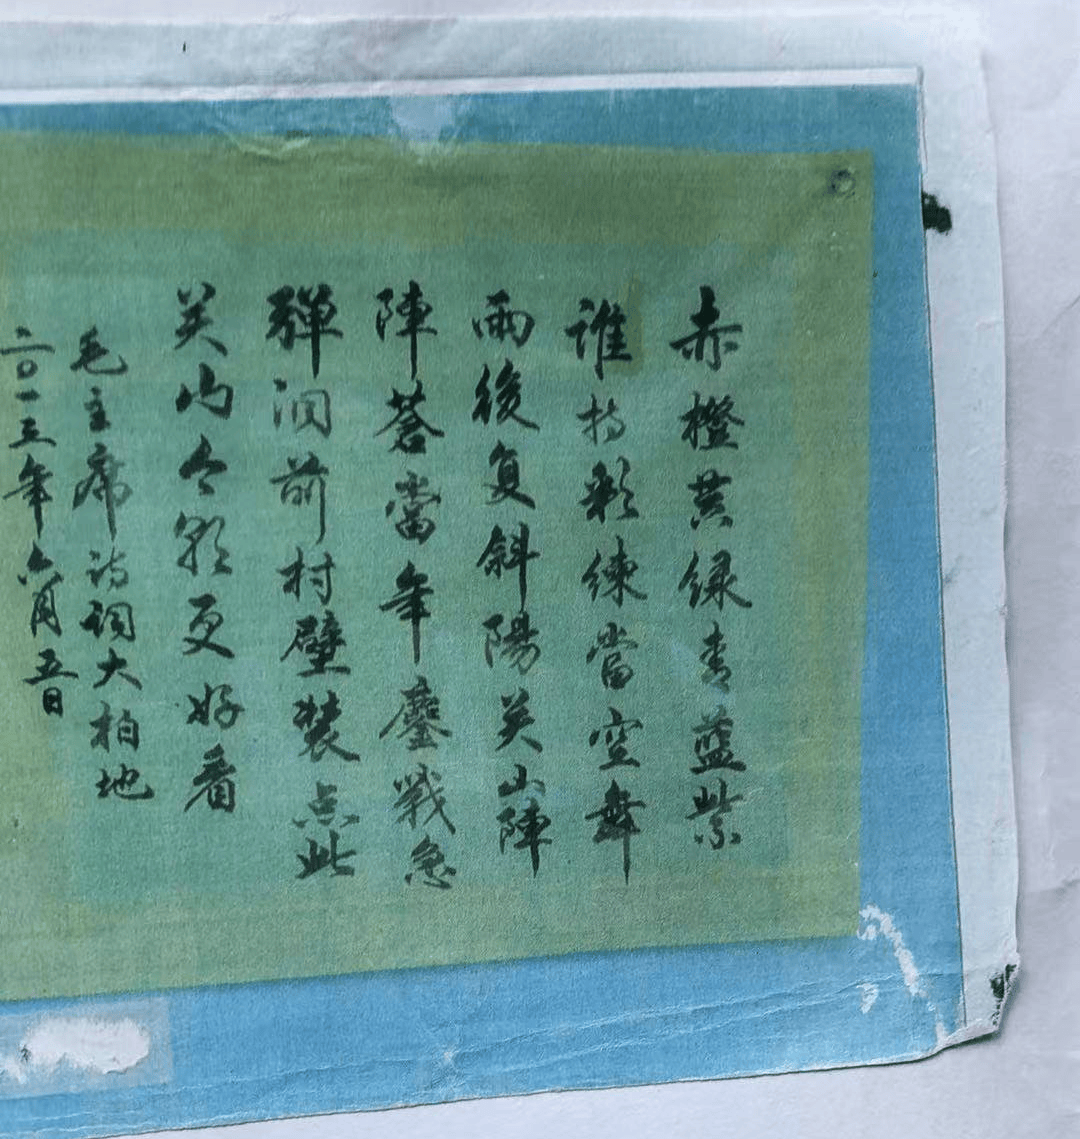 赤橙黄绿青蓝紫
谁持彩練當空舞
雨後复斜陽关山陣
陣蒼當年鏖戰急
彈洞前村壁裝点此
关山今朝更好看
毛主席诗词大柏地
二〇一三年六月五日